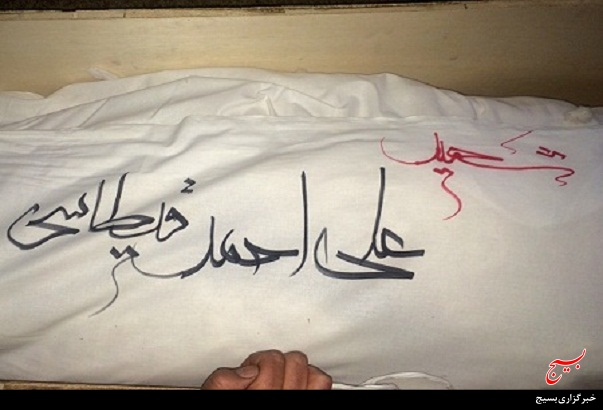 شهید
علی احمد قیطاسی
بسیج
خبرگزاری بسیج